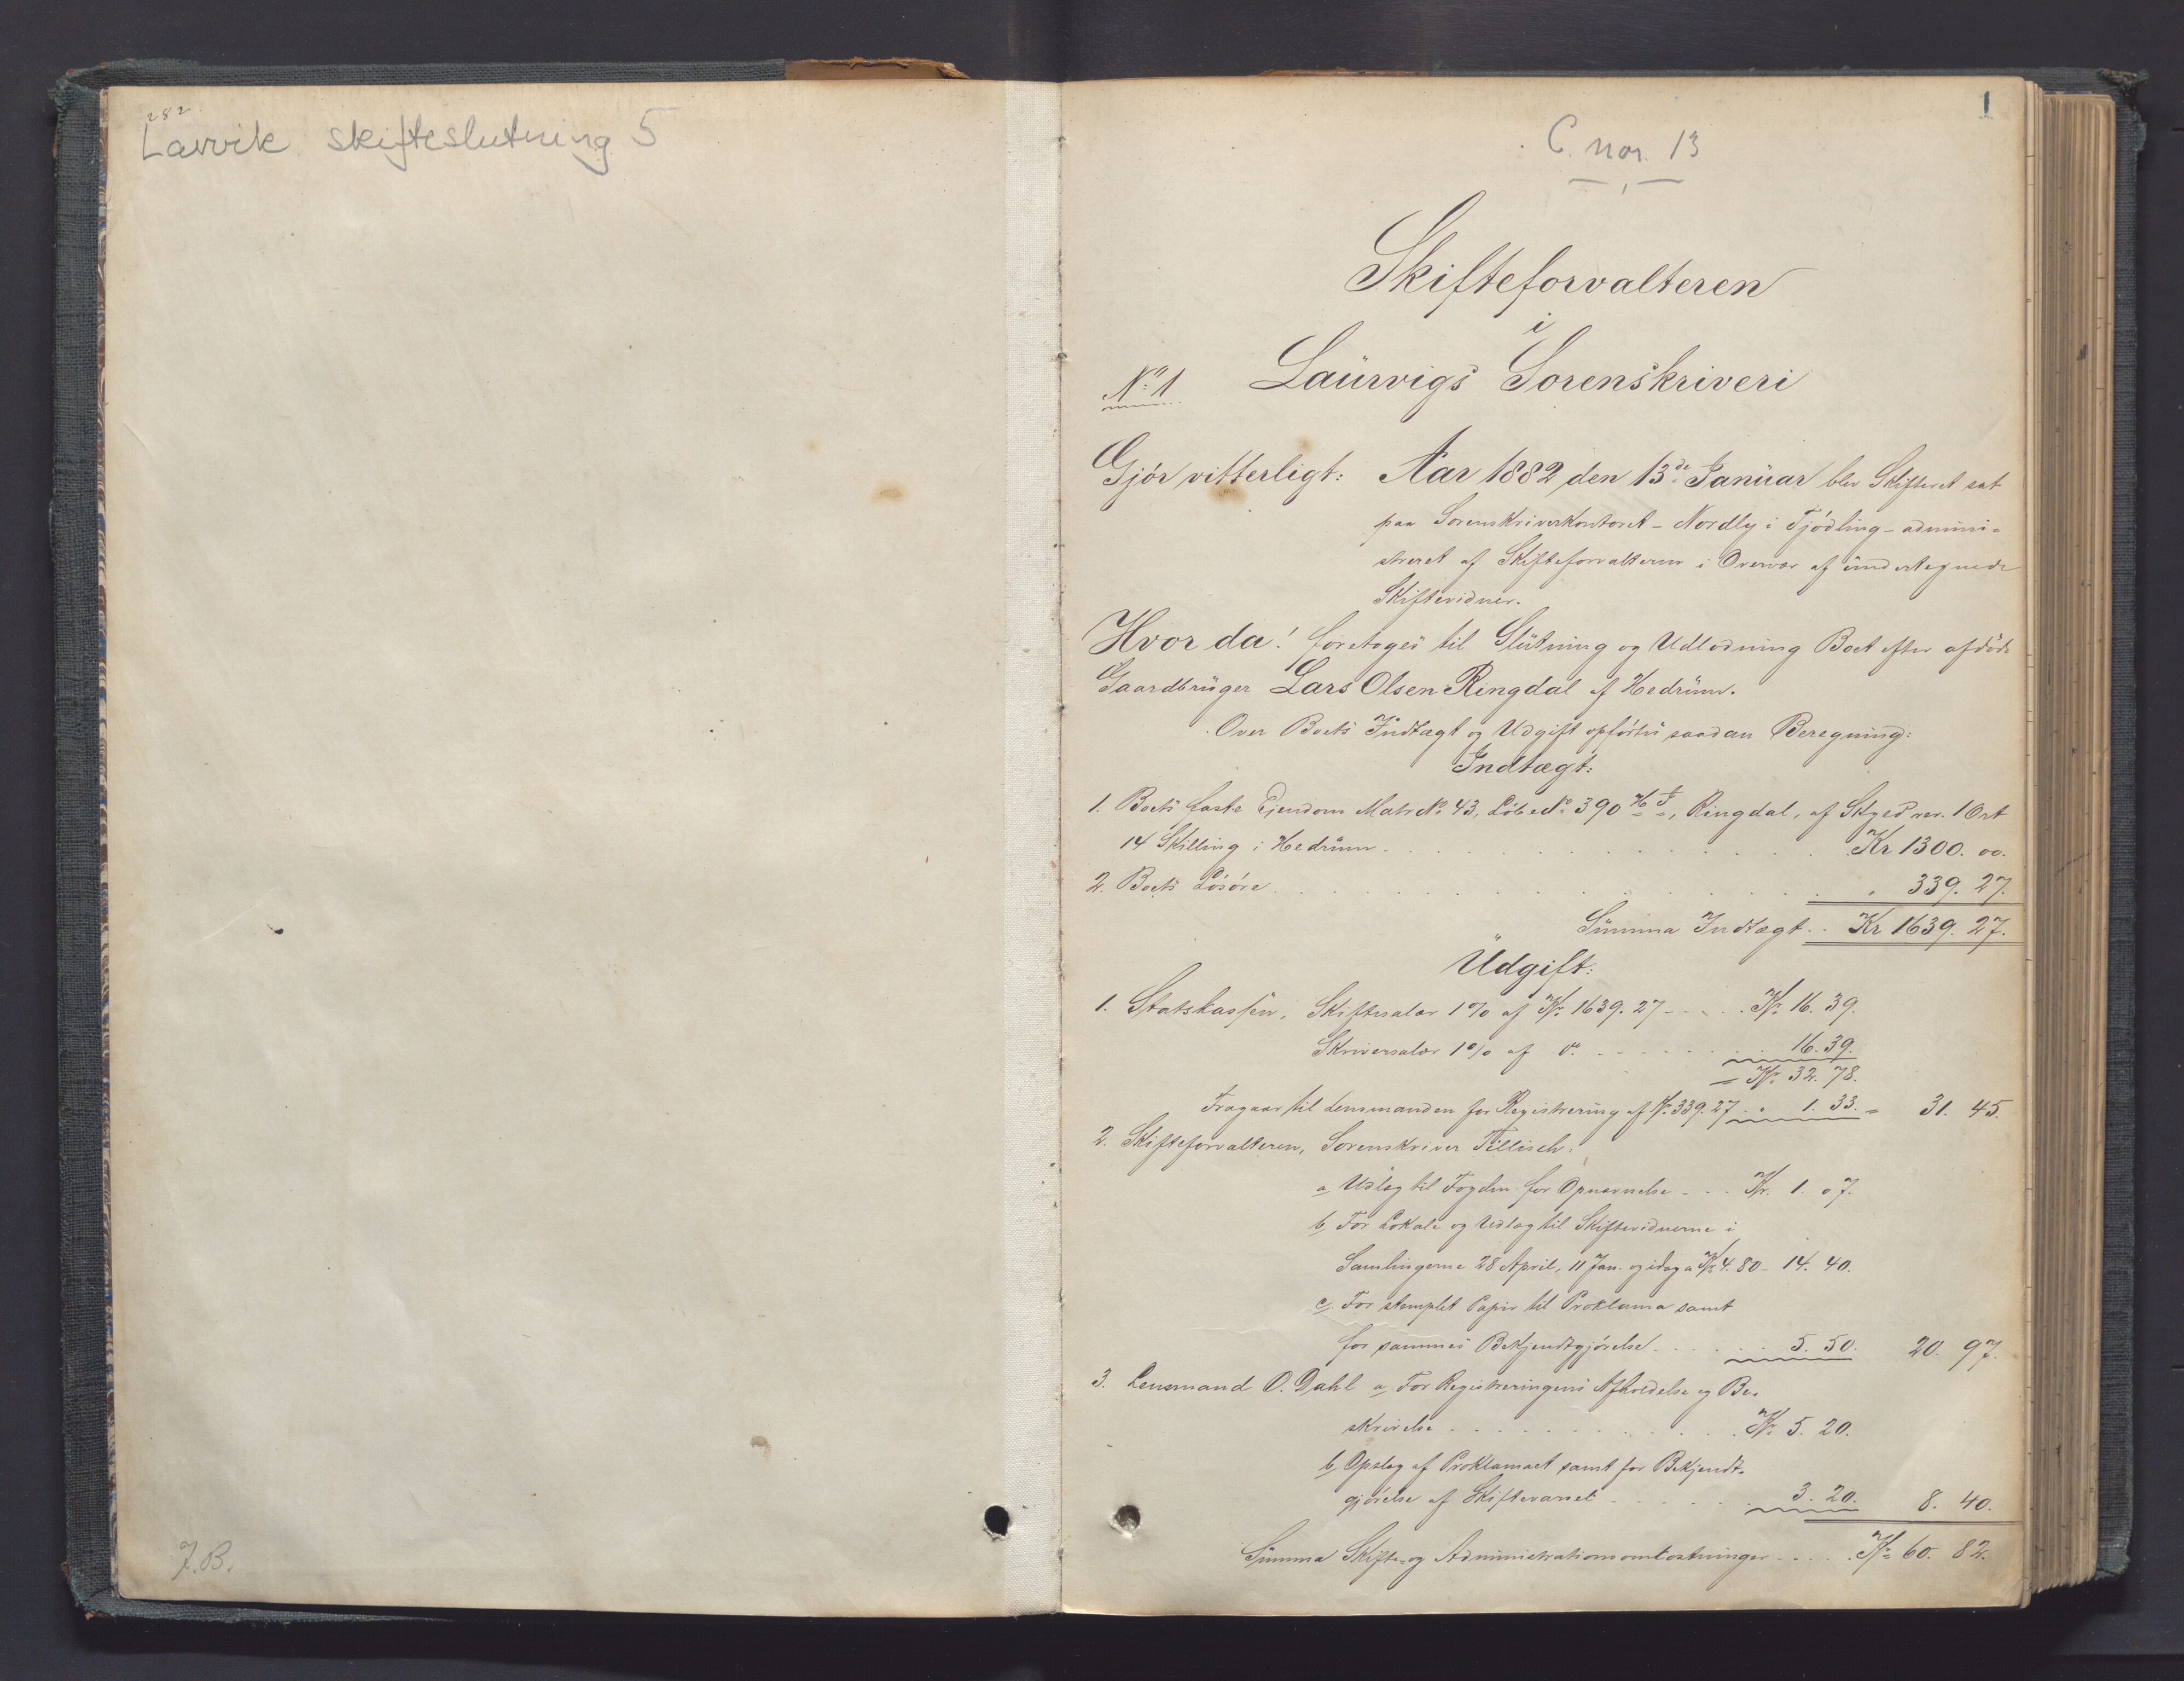 282
Larvik skifteslutning 5
J.B.
1
C. nor. 13
Skifteforvalteren
i
No 1 Laurvigs Sorenskriveri
Gjör vitterligt: Aar 1882 den 13de Januar blev Skifteret sat
paa Sorenskriverkontoret - Nordly i Tjödling - admini=
streret af Skifteforvalteren i Overvær af undertegnede
Skiftevidner.
Hvor da! foretoges til Slutning og Udlodning Boet efter afdöde
Gaardbruger Lars Olsen Ringdal af Hedrum.
Over Boets Indtægt og Udgift opförtes saadan Beregning:
Indtægt:
1. Boets faste Ejendom Matr No 43, Löbe No 390, Ringdal, af Skyld rev. 1 Ort
14 Skilling i Hedrum . . . Kr 1300. 00.
2. Boets Lösöre . . . " 339. 27.
Summa Indtægt . . Kr 1639. 27.
Udgift:
1. Statskassen, Skiftesalær 1% af Kr. 1639. 27 - . . . Kr. 16. 39.
Skriversalær 1% af do. . . . 16. 39.
= Kr. 32. 78.
Fragaar til Lensmanden for Registrering af Kr. 339. 27 . . 1. 33. = 31. 45.
2. Skifteforvalteren, Sorenskriver Tillisch:
a, Udlæg til Fogden for Opnævnelse - . . Kr. 1. 07.
b, For Lokale og Udlæg til Skiftevidnerne i
Samlingerne 28 April, 11 Jan. og idag a Kr 4. 80 - 14. 40.
c, For stemplet Papir til Proklama samt
for sammes Bekjendtgjörelse . . . 5. 50. 20. 97.
3. Lensmand O. Dahl a, For Registreringens Afholdelse og Be=
skrivelse . . . Kr. 5. 20.
b, Opslag af Proklamaet samt for Bekjendt=
gjörelse af Skiftevarsel . . . 3. 20. 8. 40.
Summa Skifte- og Administrationsomkostninger . . . Kr. 60. 82.